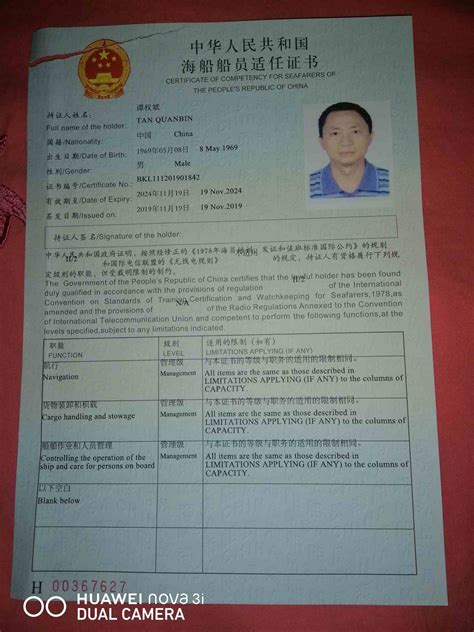 中华人民共和国
海船船员适任证书
CERTIFICATE OF COMPETENCY FOR SEAFARERS OF
THE PEOPLE'S REPUBLIC OF CHINA
持证人姓名: 谭权联
Full name of the holder: TAN QUANBIN
国籍/Nationality: 中国 China
出生日期/Date of Birth: 1969年05月08日 8 May.1969
性别/Gender: 男 Male
证书编号/Certificate No.: BKL111201901842
有效期至/Date of Expiry: 2024年11月19日 19 Nov.2024
签发日期/Issued on: 2019年11月19日 19 Nov.2019
持证人签名/Signature of the holder:
中华人民共和国政府证明,按照经修正的《1978年海员培训、发证和值班标准国际公约》的规则
II/2 和国际电信联盟的《无线电规则》 不适用 的规定,持证人有资格履行下列规
定级别的职能,但受载明限制的制约。
The Government of the People's Republic of China certifies that the lawful holder has been found
duly qualified in accordance with the provisions of regulation II/2 of the International
Convention on Standards of Training,Certification and Watchkeeping for Seafarers,1978,as
amended and the provisions of N/A of the Radio Regulations Annexed to the Convention
of International Telecommunication Union and competent to perform the following functions,at the
levels specified,subject to any limitations indicated.
职能 级别 适用的限制(如有)
FUNCTION LEVEL LIMITATIONS APPLYING (IF ANY)
航行 管理级 与本证书的等级与职务的适用的限制相同。
Navigation Management All items are the same as those described in
LIMITATIONS APPLYING (IF ANY) to the columns of
CAPACITY.
货物装卸和积载 管理级 与本证书的等级与职务的适用的限制相同。
Cargo handling and stowage Management All items are the same as those described in
LIMITATIONS APPLYING (IF ANY) to the columns of
CAPACITY.
船舶作业和人员管理 管理级 与本证书的等级与职务的适用的限制相同。
Controlling the operation of the Management All items are the same as those described in
ship and care for persons on board LIMITATIONS APPLYING (IF ANY) to the columns of
CAPACITY.
以下空白
Blank below
H 00367627
HUAWEI nova 3i
DUAL CAMERA